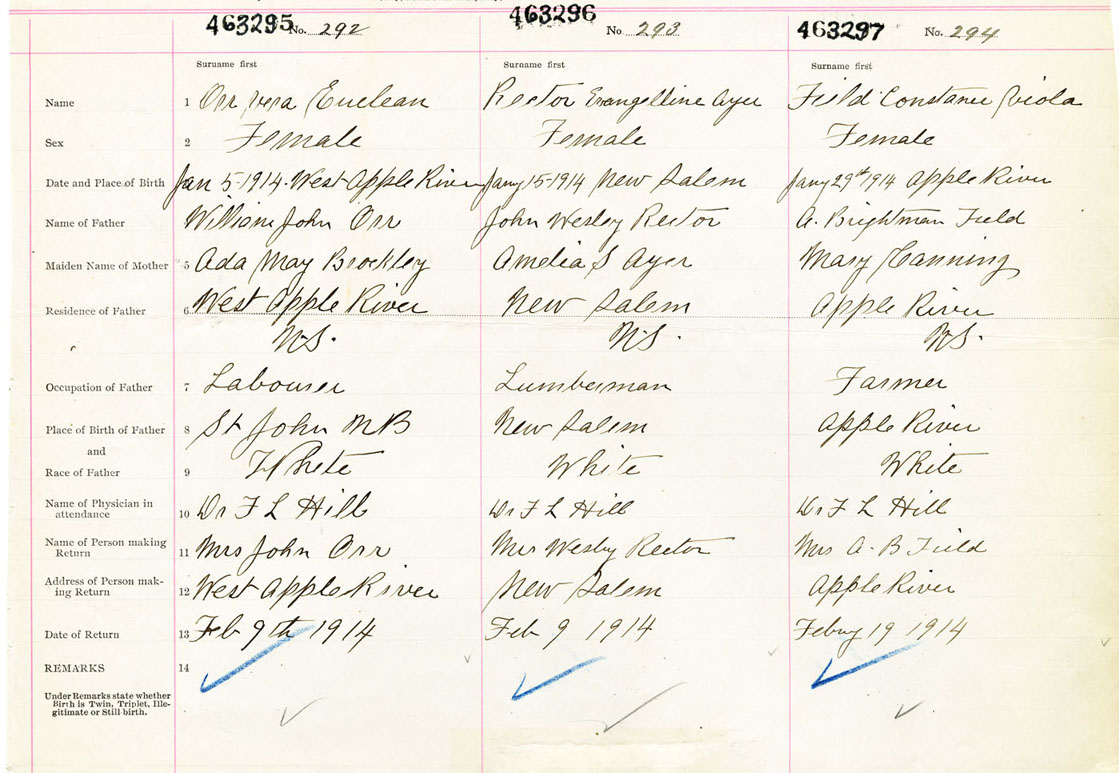 463295 No. 292 463296 No 293 463297 No. 294
Surname first Surname first Surname first
Name 1 Orr Vera Euclean Rector Evangelline Ayer Field Constance Viola
Sex 2 Female Female Female
Date and Place of Birth Jan 5-1914. West Apple River Jany 15-1914 New Salem Jany 29th 1914 Apple River
Name of Father William John Orr John Wesley Rector A. Brightman Field
Maiden Name of Mother 5 Ada May Brockley Amelia S Ayer Mary Canning
Residence of Father 6 West Apple River New Salem Apple River
N.S. N.S. N.S.
Occupation of Father 7 Labourer Lumberman Farmer
Place of Birth of Father 8 St John NB New Salem Apple River
and
Race of Father 9 White White White
Name of Physician in
attendance 10 Dr F L Hill Dr F L Hill Dr F L Hill
Name of Person making
Return 11 Mrs John Orr Mrs Wesley Rector Mrs A. B Field
Address of Person mak-
ing Return 12 West Apple River New Salem Apple River
Date of Return 13 Feb 9th 1914 Feb 9 1914 Febury 19 1914
REMARKS 14
Under Remarks state whether
Birth is Twin, Triplet, Ille-
gitimate or Still-birth.